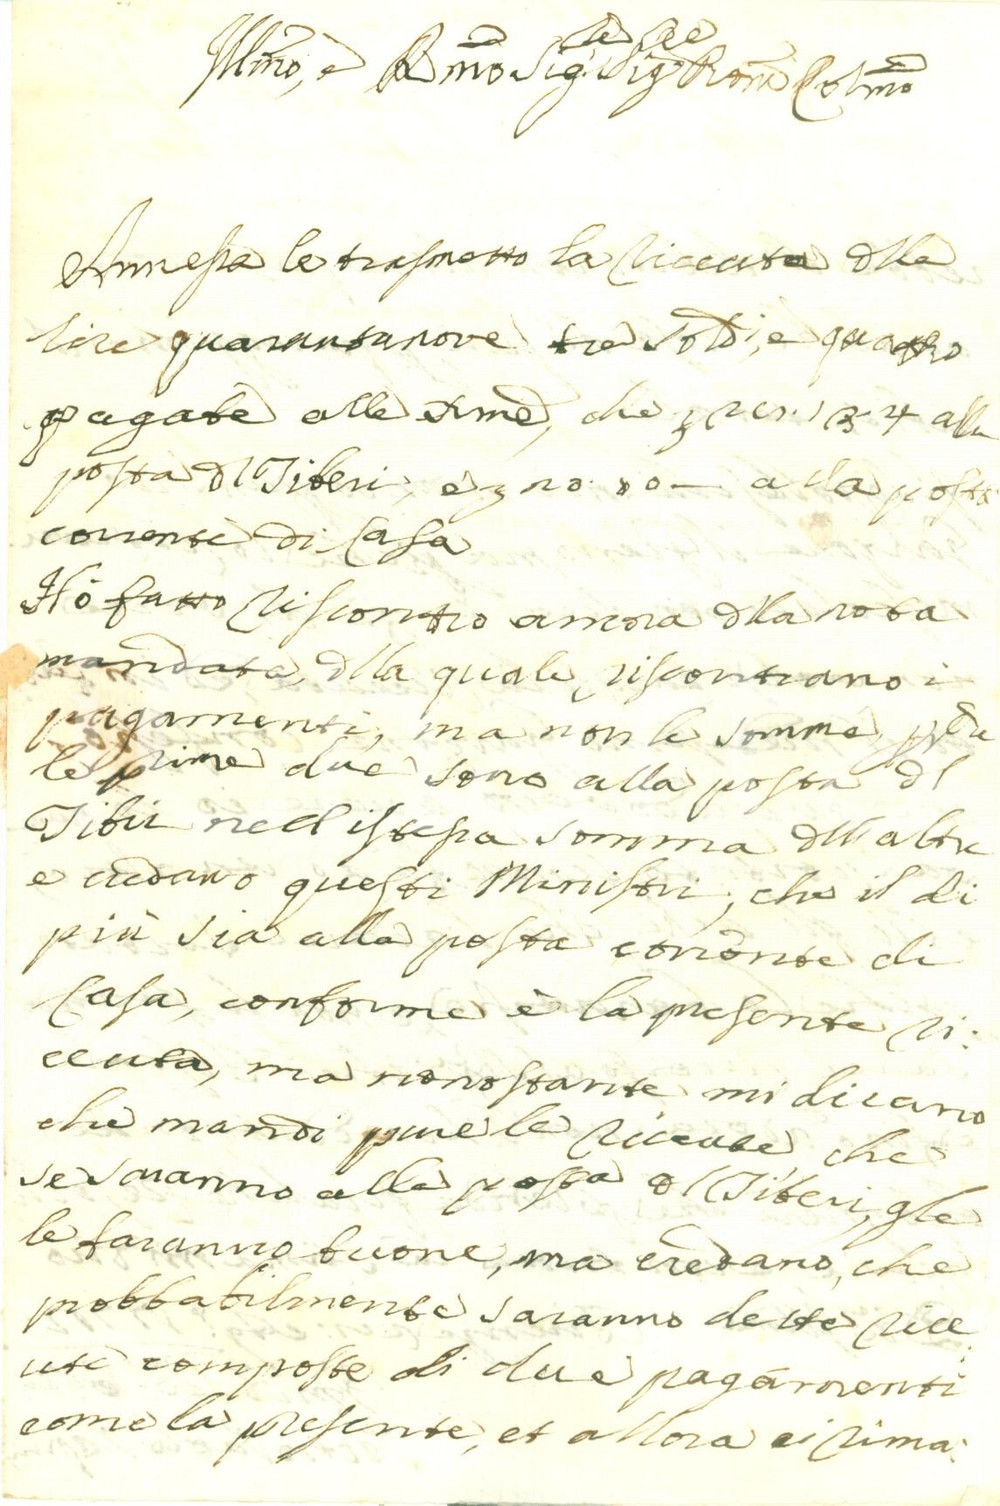 Illmo, e Rmo Sig.re Sig.re Prone Colmo
Annessa le trasmetto la riceuta dlla
lire quarantanove tre soldi, e quattro
pagate alle Arme, che 134 alla
posta dl Tiberi, e alla posta
corrente di Casa
Hò fatto riscontro ancora dlla nota
mandata, dlla quale riscontrano i
pagamenti, ma non le somme,
le prime due sono alla posta dl
Tibii nell istessa somma dll altre
e credano questi Ministri, che il di
più sia alla posta corrente di
Casa, conforme è la presente ri:
ceuta, ma nonostante mi dicano
che mandi pure le riceute che
se saranno alla posta dl Tiberi, gle
le faranno buone, ma credano, che
probbabilmente saranno dette rice
ute composte di due pagamenti
come la presente, et allora ci rima: